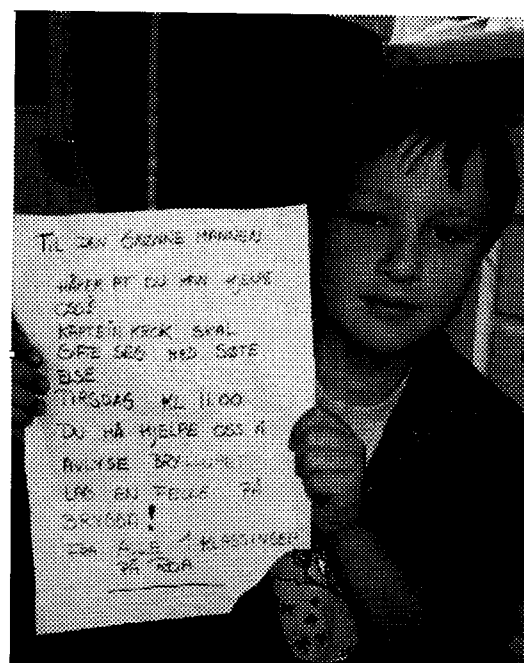 TIL DEN GRØNNE MANNEN
HÅPER AT DU KAN HJELPE
OSS
KAPTEIN KROK SKAL
GIFTE SEG MED SØTE
ELSE
TIRSDAG KL 11.00
DU MÅ HJELPE OSS Å
AVLYSE BRYLLUPET
LAG EN FELLE PÅ
BRYGGA!
FRA ALLE KLASSINGER
PÅ